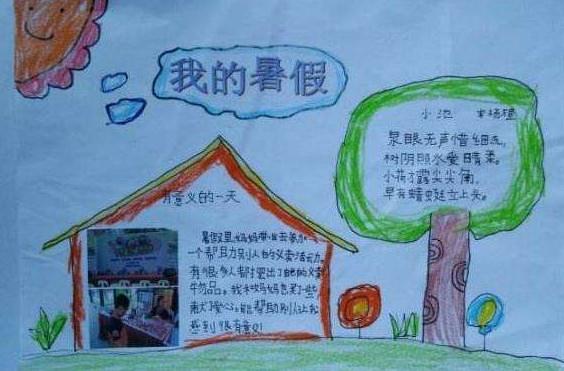 我的暑假
小池
泉眼无声惜细流,
树阴照水爱晴柔。
小荷才露尖尖角,
早有蜻蜓立上头。
有意义的一天
暑假里,妈妈带我去参加
一个帮助别人的义卖活动。
有很多人都拿出了自己的义卖
物品。我和妈妈也买了一些
献了爱心。能帮助别人让我
感到很有意义!